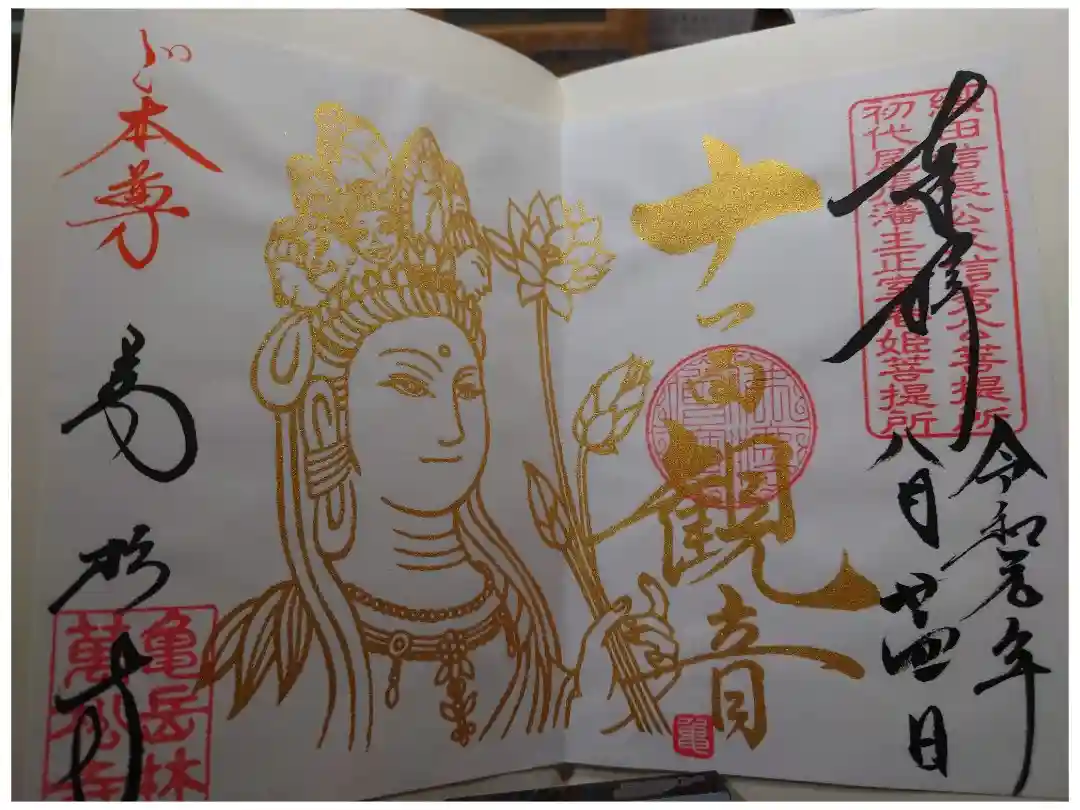 奉拝
織田信長公父信秀公菩提所
初代尾張藩主正室春姫菩提所
令和元年
八月廿四日
十一面観音
亀
御本尊
萬松寺
亀岳林
萬松寺